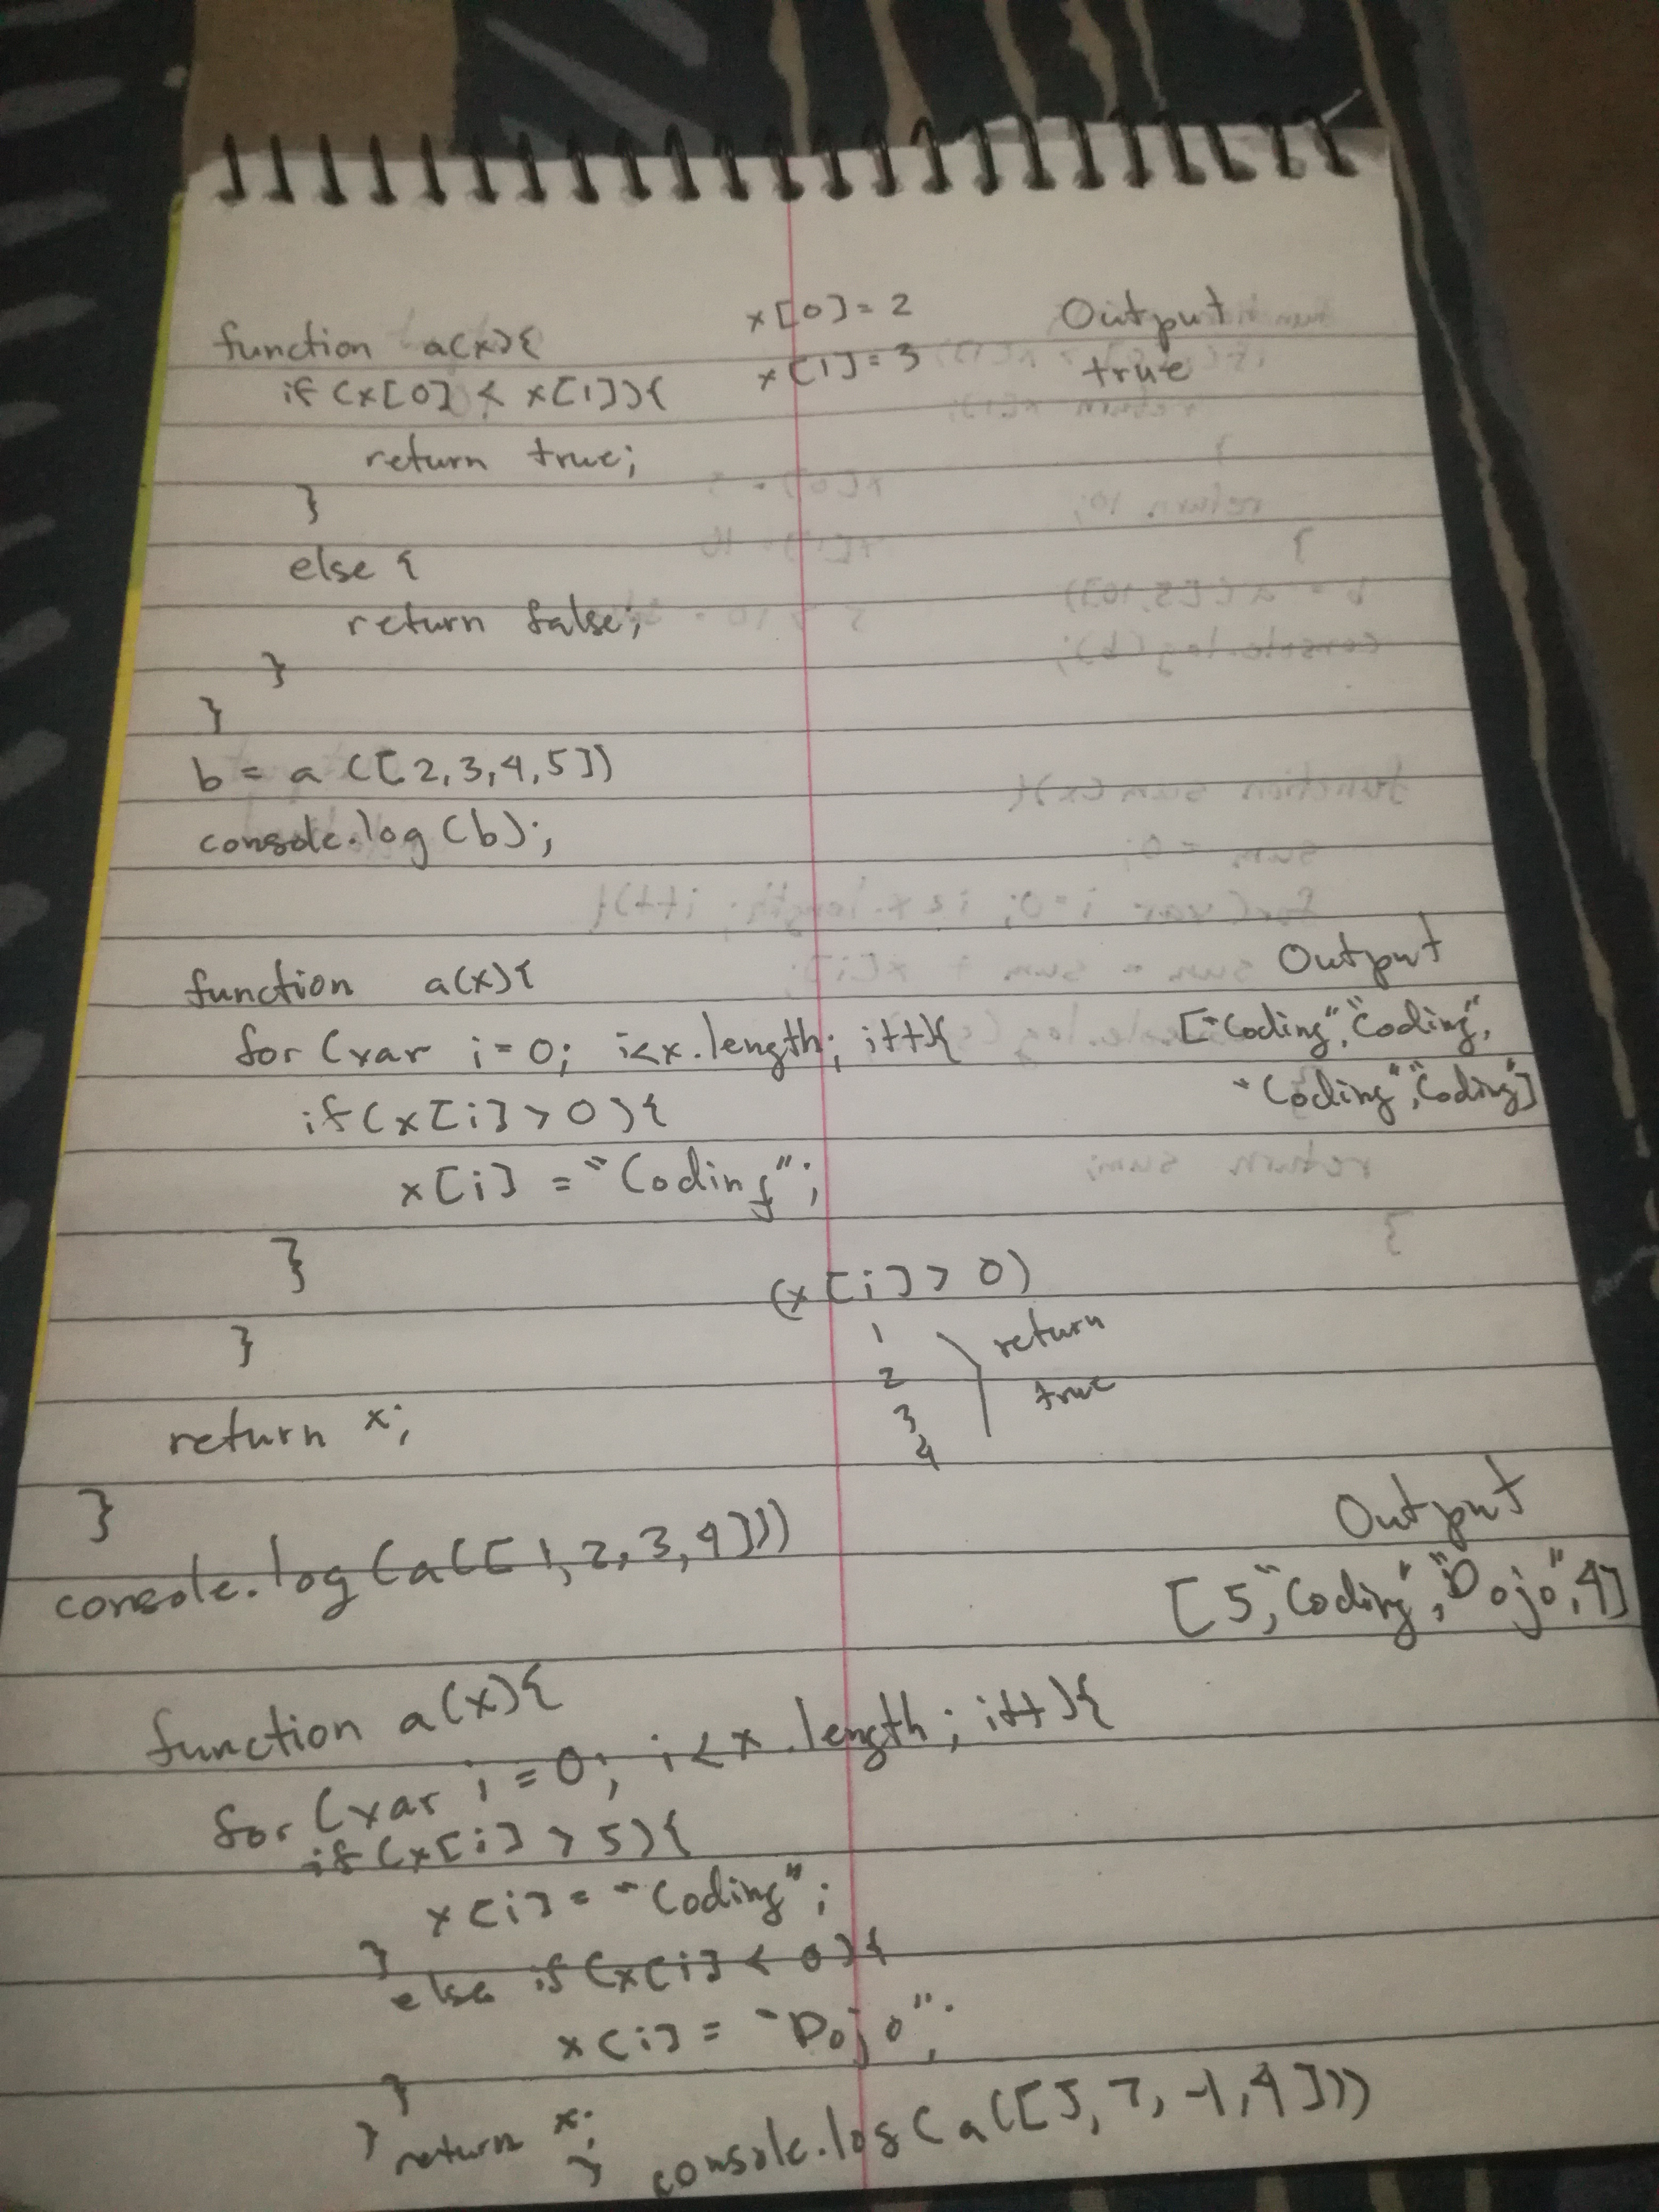 function a(x){
if (x[0] < x[1]){
return true;
}
else {
return false;
}
}
b = a ([2,3,4,5])
console.log(b);
x[0] = 2
x[1] = 3
Output
true
function a(x){
for (var i = 0; i<x.length; i++){
if (x[i] > 0){
x[i] = "Coding";
}
}
return x;
}
console.log(a([1,2,3,4]))
Output
["Coding","Coding",
"Coding","Coding"]
(x[i] > 0)
1
2
3
4
return
true
function a(x){
for (var i = 0; i<x.length; i++){
if (x[i] > 5){
x[i] = "Coding";
}
else if (x[i] < 0){
x[i] = "Dojo";
}
}
return x;
}
console.log(a([5,7,-1,4]))
Output
[5,"Coding","Dojo",4]